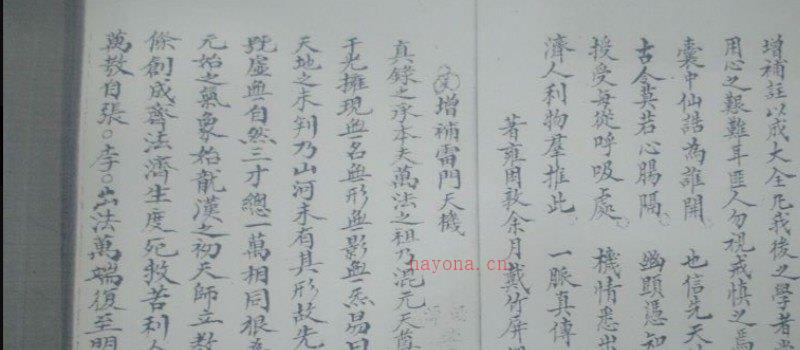 增補註以成大全凡我後之學者
用心之艱難耳匪人勿視戒慎之焉
囊中仙誥為誰開　也信先天
古今莫若心腸隔　幽顯憑知
授受每從呼吸處　機情悉出
濟人利物羣推此　一脈真傳
著雍困敦余月戴竹屏
增補雷門天機
真錄之承本夫萬法之祖乃混元天尊
于光擁現無名無形無影無炁易曰
天地之未判乃山河未有其形故先
既虛無自然三才總一萬相同根為
元始之氣象始龍漢之初天師立教
條創成齋法濟生度死救苦利人
萬教自張。李。出法萬端復至明
nayona.cn